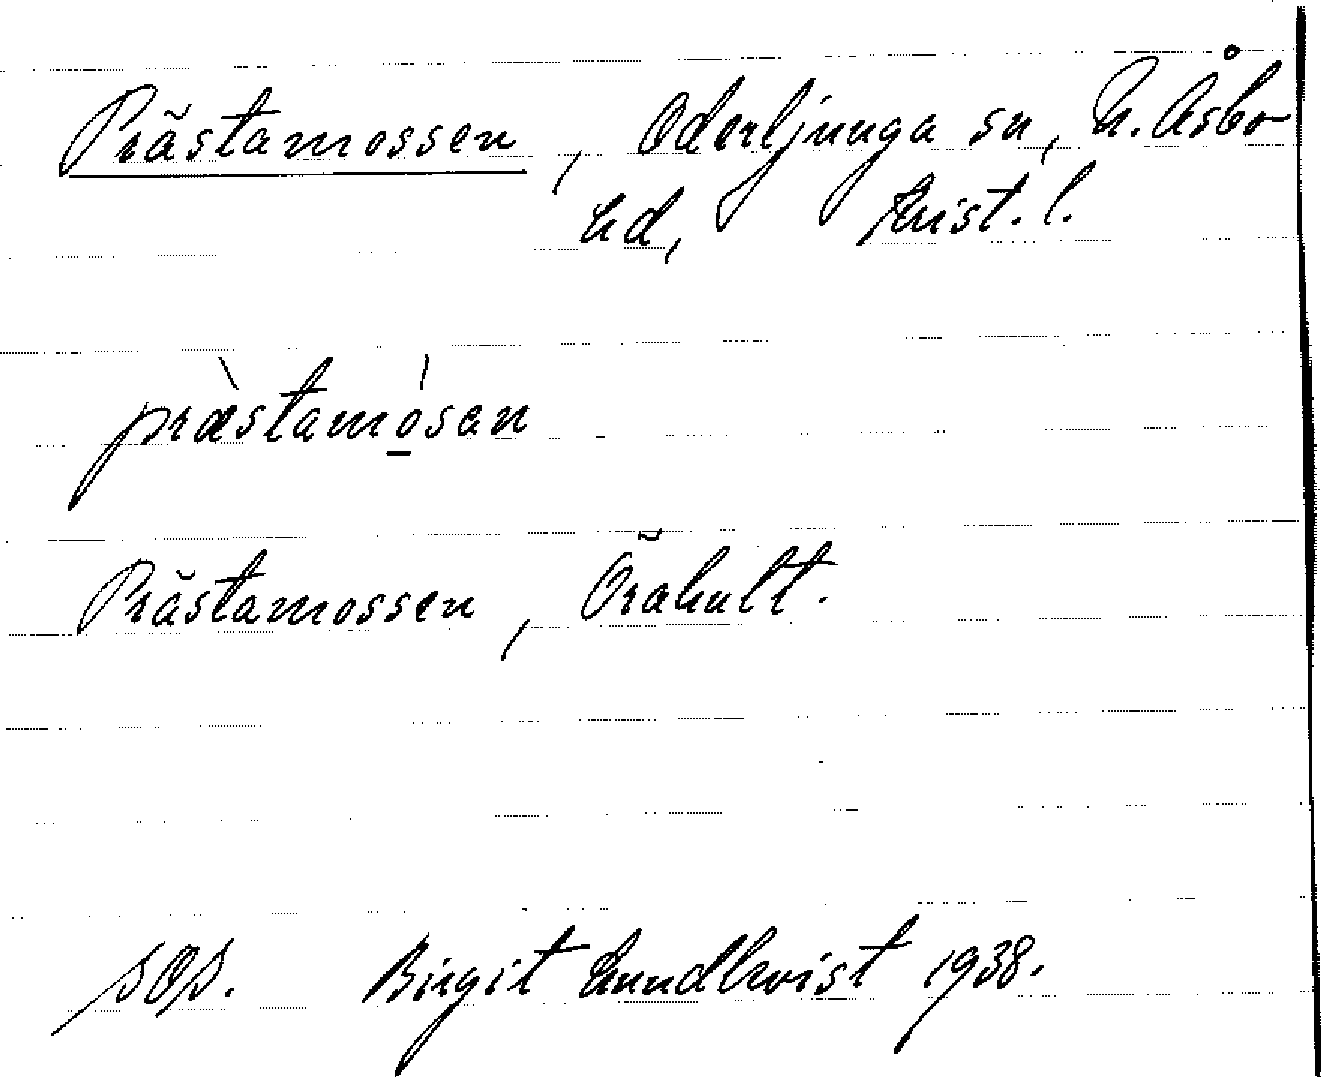 Prästamossen, Oderljunga sn, N. Åsbo
hd, Krist. l.
præ̀stamósan
Prästamossen, Örahult.
SOS. Birgit Lundkvist 1938.